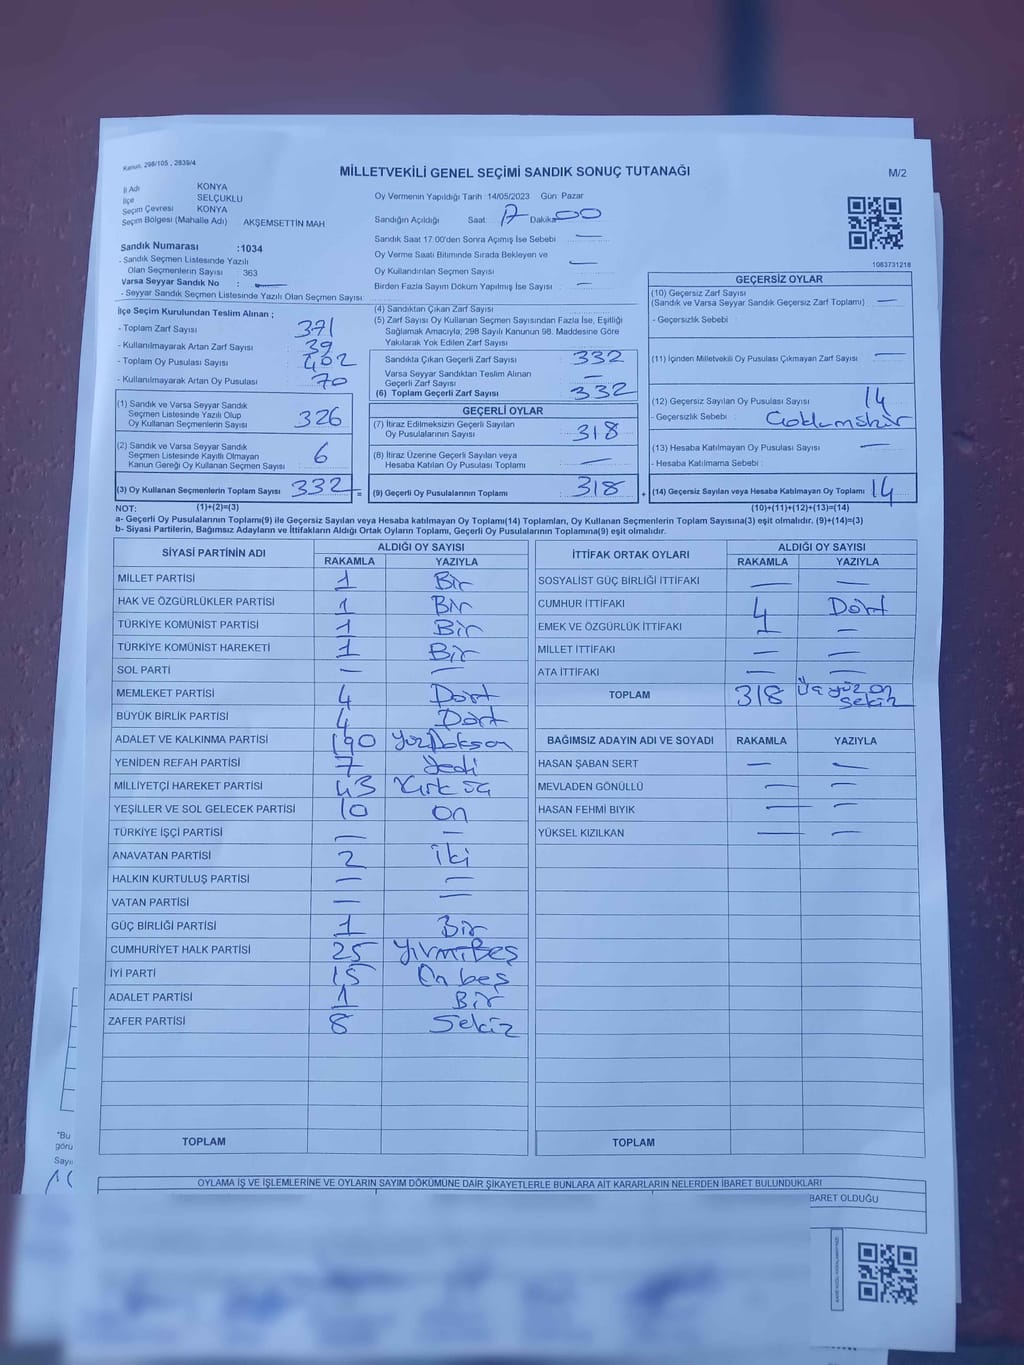 Kanun, 298/105, 2839/4
MİLLETVEKİLİ GENEL SEÇİMİ SANDIK SONUÇ TUTANAĞI
M/2
İl Adı KONYA
İlçe SELÇUKLU
Seçim Çevresi KONYA
Seçim Bölgesi (Mahalle Adı) AKŞEMSETTİN MAH
Oy Vermenin Yapıldığı Tarih 14/05/2023 Gün: Pazar
Sandığın Açıldığı Saat 17 Dakika 00
Sandık Saat 17.00'den Sonra Açımış İse Sebebi —
Oy Verme Saati Bitiminde Sırada Bekleyen ve
Oy Kullandırılan Seçmen Sayısı —
Birden Fazla Sayım Döküm Yapılmış İse Sayısı —
1063731218
Sandık Numarası :1034
- Sandık Seçmen Listesinde Yazılı
Olan Seçmenlerin Sayısı : 363
Varsa Seyyar Sandık No : —
- Seyyar Sandık Seçmen Listesinde Yazılı Olan Seçmen Sayısı
İlçe Seçim Kurulundan Teslim Alınan ;
- Toplam Zarf Sayısı 371
- Kullanılmayarak Artan Zarf Sayısı 39
- Toplam Oy Pusulası Sayısı 402
- Kullanılmayarak Artan Oy Pusulası 70
(1) Sandık ve Varsa Seyyar Sandık
Seçmen Listesinde Yazılı Olup
Oy Kullanan Seçmen Sayısı : 326
(2) Sandık ve Varsa Seyyar Sandık
Seçmen Listesinde Kayıtlı Olmayan
Kanun Gereği Oy Kullanan Seçmen Sayısı : 6
(3) Oy Kullanan Seçmenlerin Toplam Sayısı 332 =
(4) Sandıktan Çıkan Zarf Sayısı
(5) Zarf Sayısı Oy Kullanan Seçmen Sayısından Fazla İse, Eşitliği
Sağlamak Amacıyla; 298 Sayılı Kanunun 98. Maddesine Göre
Yakılarak Yok Edilen Zarf Sayısı
Sandıkta Çıkan Geçerli Zarf Sayısı : 332
Varsa Seyyar Sandıktan Teslim Alınan
Geçerli Zarf Sayısı : —
(6) Toplam Geçerli Zarf Sayısı : 332
GEÇERLİ OYLAR
(7) İtiraz Edilmeksizin Geçerli Sayılan
Oy Pusulalarının Sayısı : 318
(8) İtiraz Üzerine Geçerli Sayılan veya
Hesaba Katılan Oy Pusulası Toplamı : —
(9) Geçerli Oy Pusulalarının Toplamı : 318 +
GEÇERSİZ OYLAR
(10) Geçersiz Zarf Sayısı
(Sandık ve Varsa Seyyar Sandık Geçersiz Zarf Toplamı) : —
- Geçersizlik Sebebi :
(11) İçinden Milletvekili Oy Pusulası Çıkmayan Zarf Sayısı : —
(12) Geçersiz Sayılan Oy Pusulası Sayısı : 14
- Geçersizlik Sebebi :
(13) Hesaba Katılmayan Oy Pusulası Sayısı : —
- Hesaba Katılmama Sebebi :
(14) Geçersiz Sayılan veya Hesaba Katılmayan Oy Toplamı : 14
NOT: (1)+(2)=(3) (10)+(11)+(12)+(13)=(14)
a- Geçerli Oy Pusulalarının Toplamı(9) ile Geçersiz Sayılan veya Hesaba katılmayan Oy Toplamı(14) Toplamları, Oy Kullanan Seçmenlerin Toplam Sayısına(3) eşit olmalıdır. (9)+(14)=(3)
b- Siyasi Partilerin, Bağımsız Adayların ve İttifakların Aldığı Ortak Oyların Toplamı, Geçerli Oy Pusulalarının Toplamına(9) eşit olmalıdır.
SİYASİ PARTİNİN ADI ALDIĞI OY SAYISI
RAKAMLA YAZIYLA
MİLLET PARTİSİ 1 Bir
HAK VE ÖZGÜRLÜKLER PARTİSİ 1 Bir
TÜRKİYE KOMÜNİST PARTİSİ 1 Bir
TÜRKİYE KOMÜNİST HAREKETİ 1 Bir
SOL PARTİ — —
MEMLEKET PARTİSİ 4 Dört
BÜYÜK BİRLİK PARTİSİ 4 Dört
ADALET VE KALKINMA PARTİSİ 190 YüzDoksan
YENİDEN REFAH PARTİSİ 7 Yedi
MİLLİYETÇİ HAREKET PARTİSİ 43 Kırk üç
YEŞİLLER VE SOL GELECEK PARTİSİ 10 on
TÜRKİYE İŞÇİ PARTİSİ — —
ANAVATAN PARTİSİ 2 iki
HALKIN KURTULUŞ PARTİSİ — —
VATAN PARTİSİ — —
GÜÇ BİRLİĞİ PARTİSİ 1 Bir
CUMHURİYET HALK PARTİSİ 25 YirmiBeş
İYİ PARTİ 15 On beş
ADALET PARTİSİ 1 Bir
ZAFER PARTİSİ 8 Sekiz
TOPLAM
İTTİFAK ORTAK OYLARI ALDIĞI OY SAYISI
RAKAMLA YAZIYLA
SOSYALİST GÜÇ BİRLİĞİ İTTİFAKI — —
CUMHUR İTTİFAKI 4 Dört
EMEK VE ÖZGÜRLÜK İTTİFAKI — —
MİLLET İTTİFAKI — —
ATA İTTİFAKI — —
TOPLAM 318 Üç yüz on
Sekiz
BAĞIMSIZ ADAYIN ADI VE SOYADI RAKAMLA YAZIYLA
HASAN ŞABAN SERT — —
MEVLADEN GÖNÜLLÜ — —
HASAN FEHMİ BIYIK — —
YÜKSEL KIZILKAN — —
TOPLAM
OYLAMA İŞ VE İŞLEMLERİNE VE OYLARIN SAYIM DÖKÜMÜNE DAİR ŞİKAYETLERLE BUNLARA AİT KARARLARIN NELERDEN İBARET BULUNDUKLARI
BARET OLDUĞU
*Bu
görü
Sayı